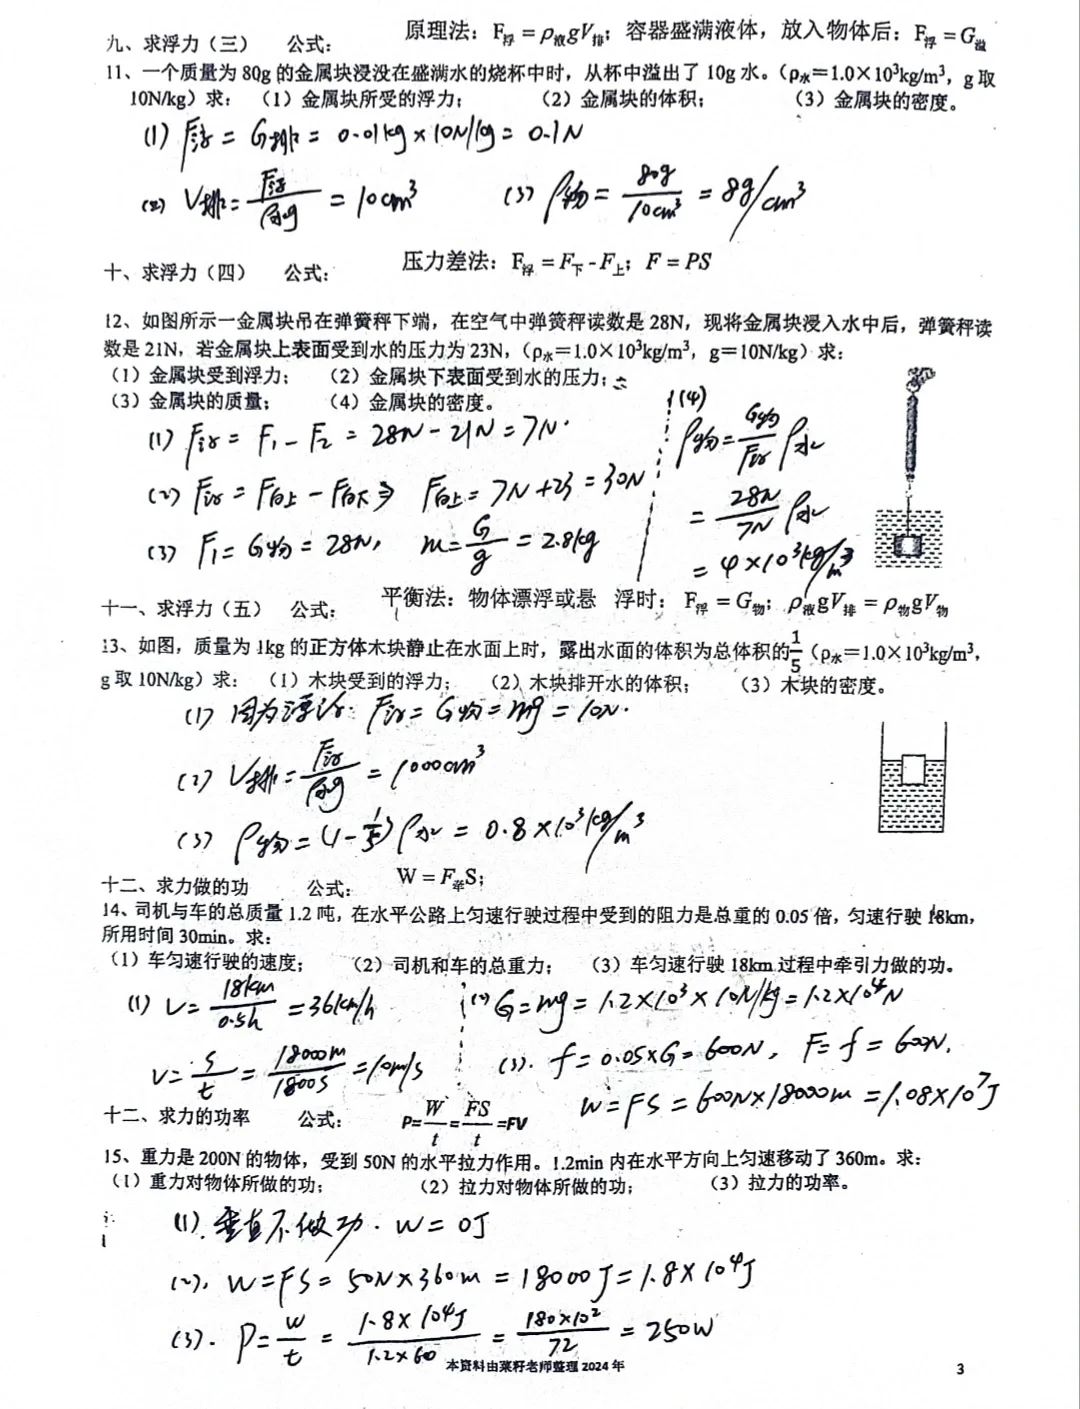 九、求浮力（三） 公式： 原理法：F浮 = ρ液gV排；容器盛满液体，放入物体后：F浮 = G溢
11、一个质量为 80g 的金属块浸没在盛满水的烧杯中时，从杯中溢出了 10g 水。（ρ水＝1.0×10³kg/m³，g 取
10N/kg）求：（1）金属块所受的浮力； （2）金属块的体积； （3）金属块的密度。
(1) F浮 = G排 = 0.01kg×10N/kg = 0.1N
(2) V排 = F浮/ρ水g = 10cm³ (3) ρ物 = 80g/10cm³ = 8g/cm³
十、求浮力（四） 公式： 压力差法：F浮 = F下 - F上；F = PS
12、如图所示一金属块吊在弹簧秤下端，在空气中弹簧秤读数是 28N，现将金属块浸入水中后，弹簧秤读
数是 21N，若金属块上表面受到水的压力为 23N，（ρ水＝1.0×10³kg/m³，g＝10N/kg）求：
（1）金属块受到浮力； （2）金属块下表面受到水的压力；
（3）金属块的质量； （4）金属块的密度。
(1) F浮 = F₁ - F₂ = 28N - 21N = 7N
(2) F浮 = F向上 - F向下 ⇒ F向上 = 7N + 23 = 30N
(3) F₁ = G物 = 28N， m = G/g = 2.8kg
(4)
ρ物 = G物/F浮 ρ水
= 28N/7N ρ水
= 4×10³kg/m³
十一、求浮力（五） 公式： 平衡法：物体漂浮或悬 浮时：F浮 = G物；ρ液gV排 = ρ物gV物
13、如图，质量为 1kg 的正方体木块静止在水面上时，露出水面的体积为总体积的1/5（ρ水＝1.0×10³kg/m³，
g 取 10N/kg）求：（1）木块受到的浮力； （2）木块排开水的体积； （3）木块的密度。
(1) 因为漂浮：F浮 = G物 = mg = 10N.
(2) V排 = F浮/ρ水g = 1000cm³
(3) ρ物 = (1-1/5)ρ水 = 0.8×10³kg/m³
十二、求力做的功 公式： W = F牵S；
14、司机与车的总质量 1.2 吨，在水平公路上匀速行驶过程中受到的阻力是总重的 0.05 倍，匀速行驶 18km，
所用时间 30min。求：
（1）车匀速行驶的速度； （2）司机和车的总重力； （3）车匀速行驶 18km 过程中牵引力做的功。
(1) V = 18km/0.5h = 36km/h
V = S/t = 18000m/1800S = 10m/s
(2) G = mg = 1.2×10³×10N/kg = 1.2×10⁴N
(3). f = 0.05×G = 600N， F = f = 600N.
W = FS = 600N×18000m = 1.08×10⁷J
十二、求力的功率 公式： P=W/t=FS/t=FV
15、重力是 200N 的物体，受到 50N 的水平拉力作用。1.2min 内在水平方向上匀速移动了 360m。求：
（1）重力对物体所做的功； （2）拉力对物体所做的功； （3）拉力的功率。
(1). 垂直不做功. W = 0J
(2). W = FS = 50N×360m = 18000J = 1.8×10⁴J
(3). P = W/t = 1.8×10⁴J/1.2×60 = 180×10²/72 = 250W
本资料由菜籽老师整理 2024 年
3